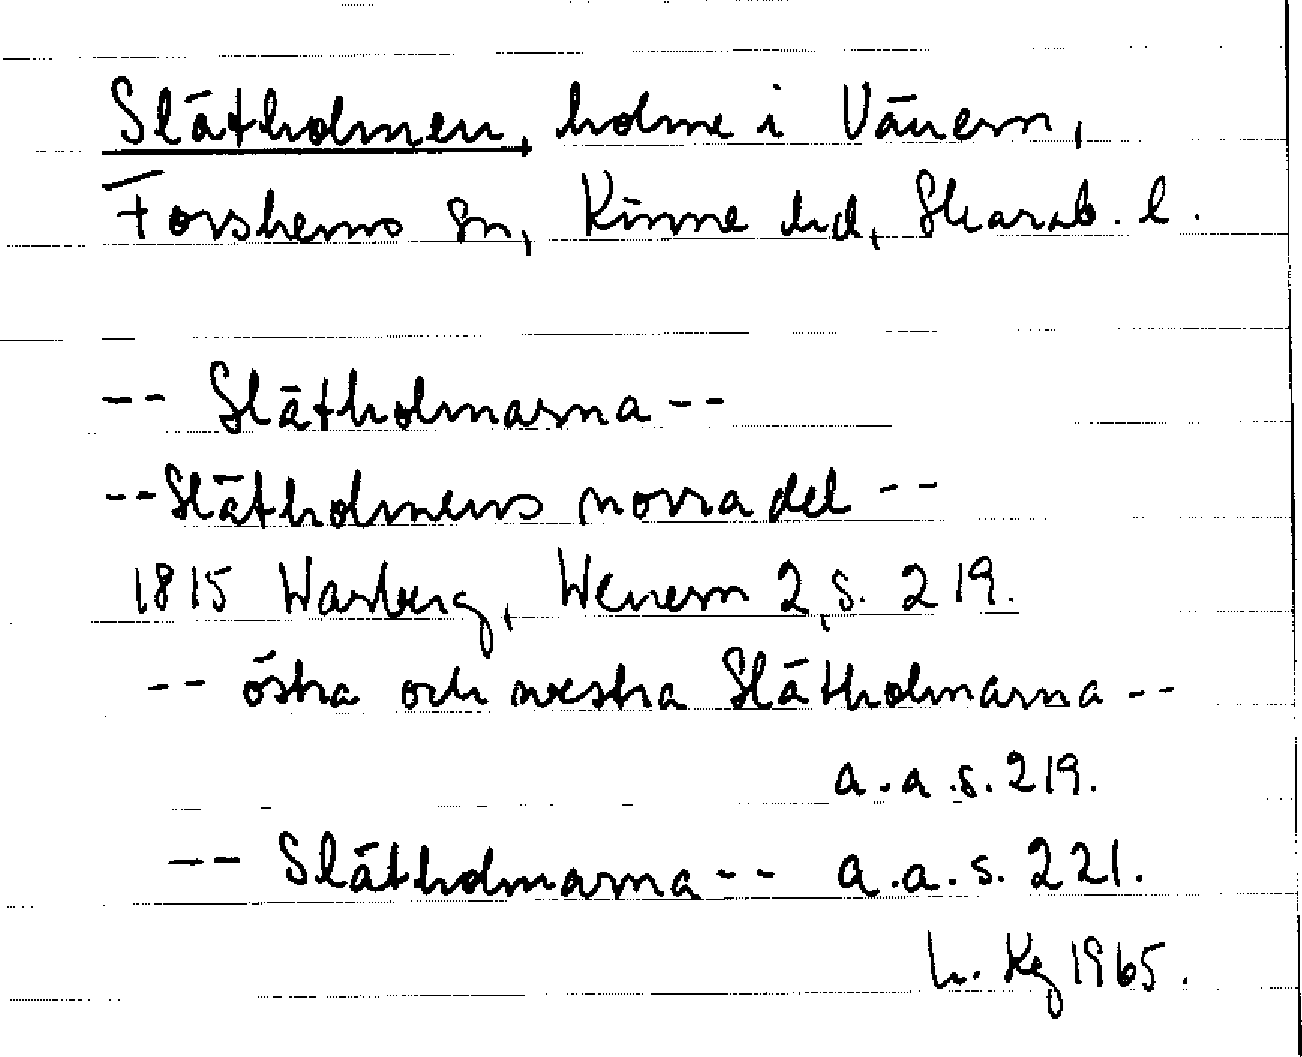 Slätholmen, holme i Vänern,
Forshems sn, Kinne hd, Skarab. l.
-- Slätholmarna --
-- Slätholmens norra del --
1815 Warberg, Wenern 2, s. 219.
-- östra och westra Slätholmarna --
a.a.s. 219.
-- Slätholmarna -- a.a.s. 221.
h. Kg 1965.